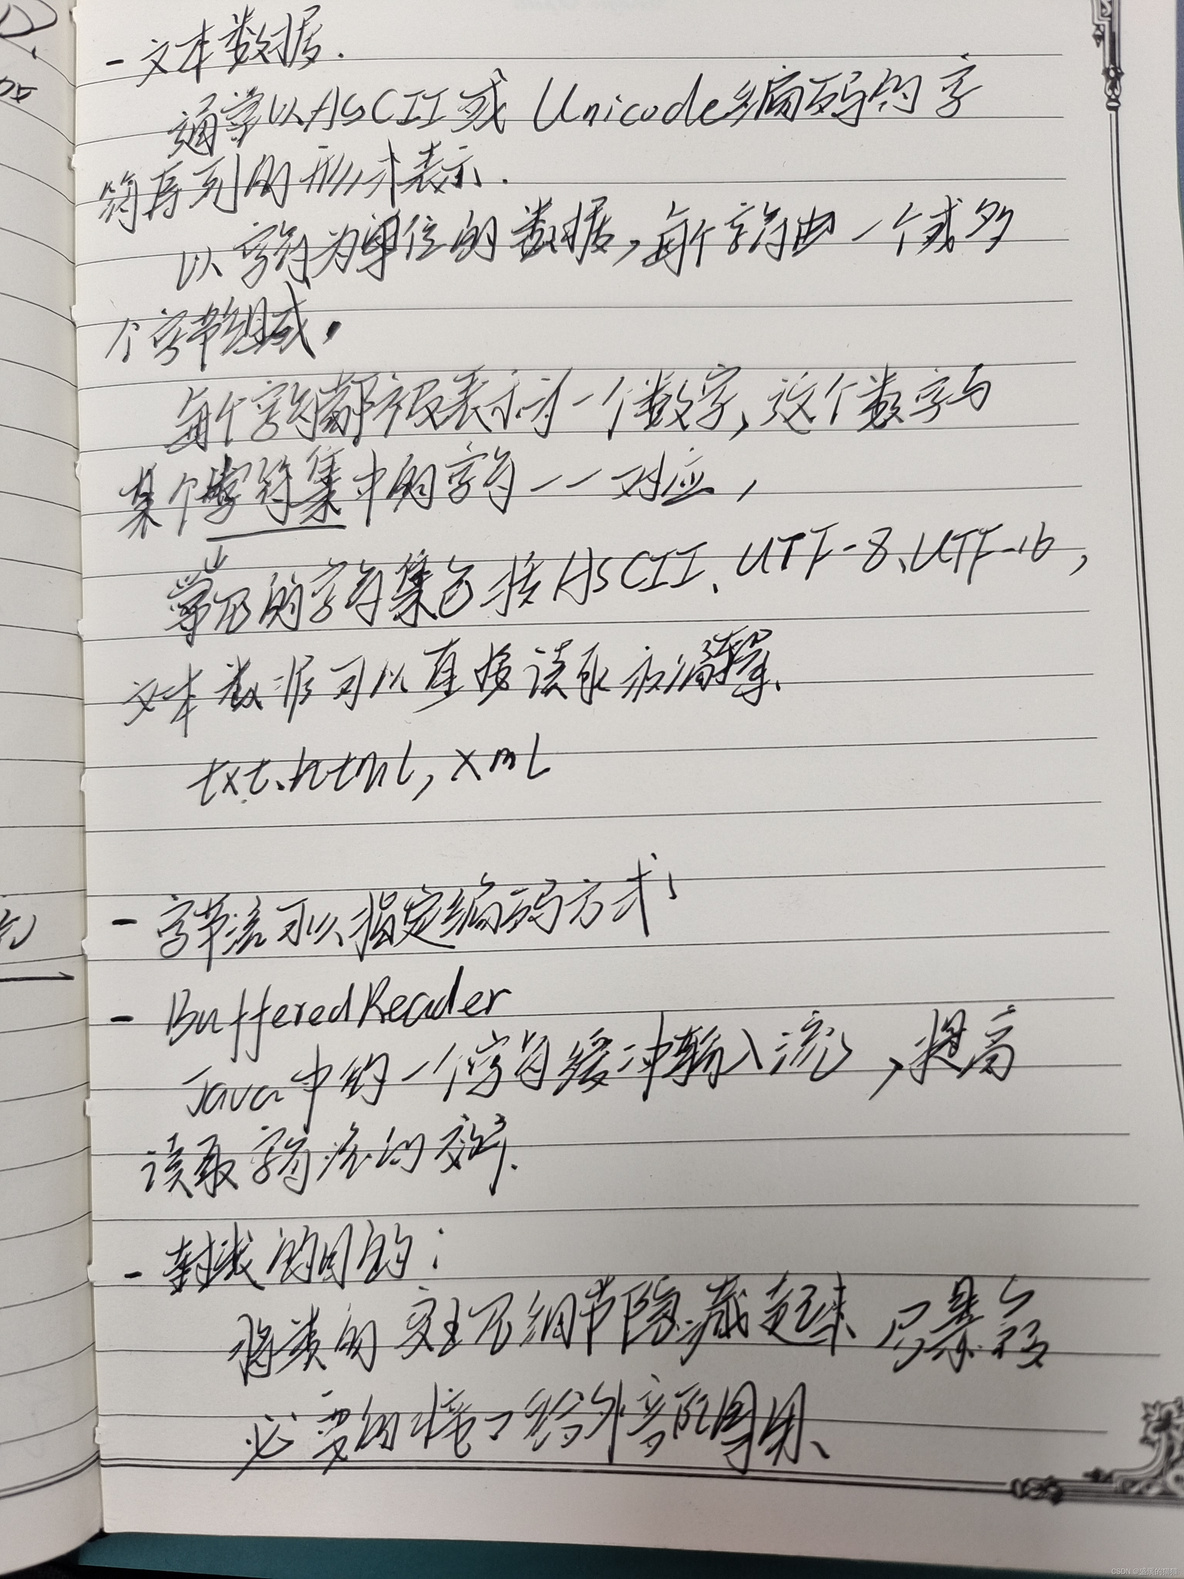 - 文本数据.
通常以ASCII或 Unicode编码的字
符序列的形式表示.
以字符为单位的数据,每个字符由一个或多
个字节组成.
每个字符都被表示为一个数字,这个数字与
某个字符集中的字符一一对应,
常见的字符集包括ASCII、UTF-8、UTF-16,
文本数据可以直接读取和编辑、
txt、html, xml
- 字节流可以指定编码方式
- BufferedReader
Java中的一个字符缓冲输入流,提高
读取字符流的效率.
- 封装的目的:
将类的实现细节隐藏起来 只暴露
必要的接口给外部使用、
CSDN